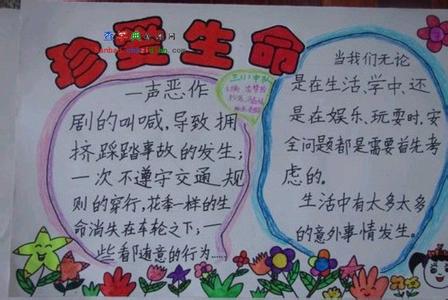 珍爱生命
一声恶作
剧的叫喊,导致拥
挤踩踏事故的发生;
一次不遵守交通规
则的穿行,花季一样的生
命消失在车轮之下;一
些看却随意的行为……
当我们无论
是在生活,学中,还
是在娱乐、玩耍时,安
全问题都是需要首先考
虑的。
生活中有太多太多
的意外事情发生。